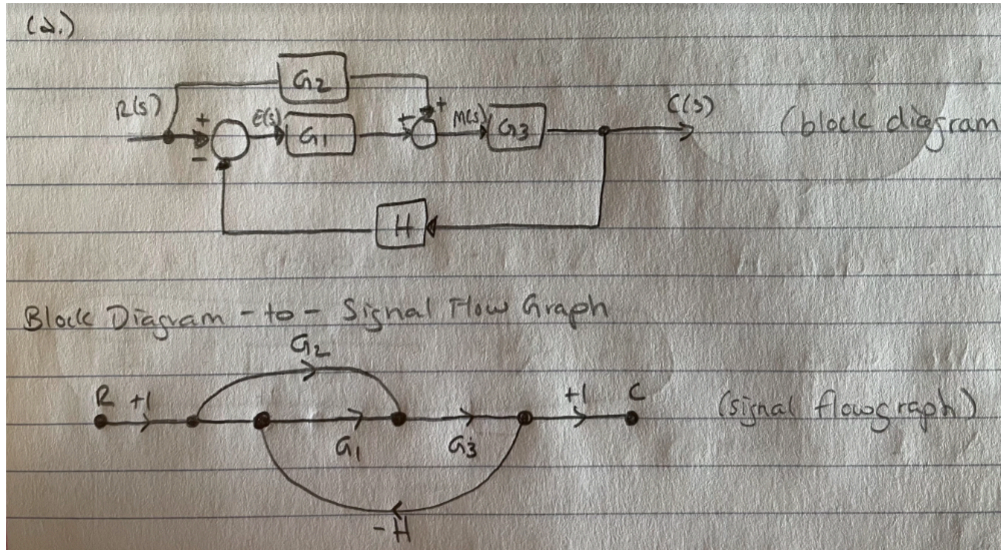 (2.)
G2
R(s) + E(s) G1 + + M(s) G3 C(s) (block diagram
-
H
Block Diagram - to - Signal Flow Graph
G2
R +1 +1 C (signal flowgraph)
G1 G3
-H